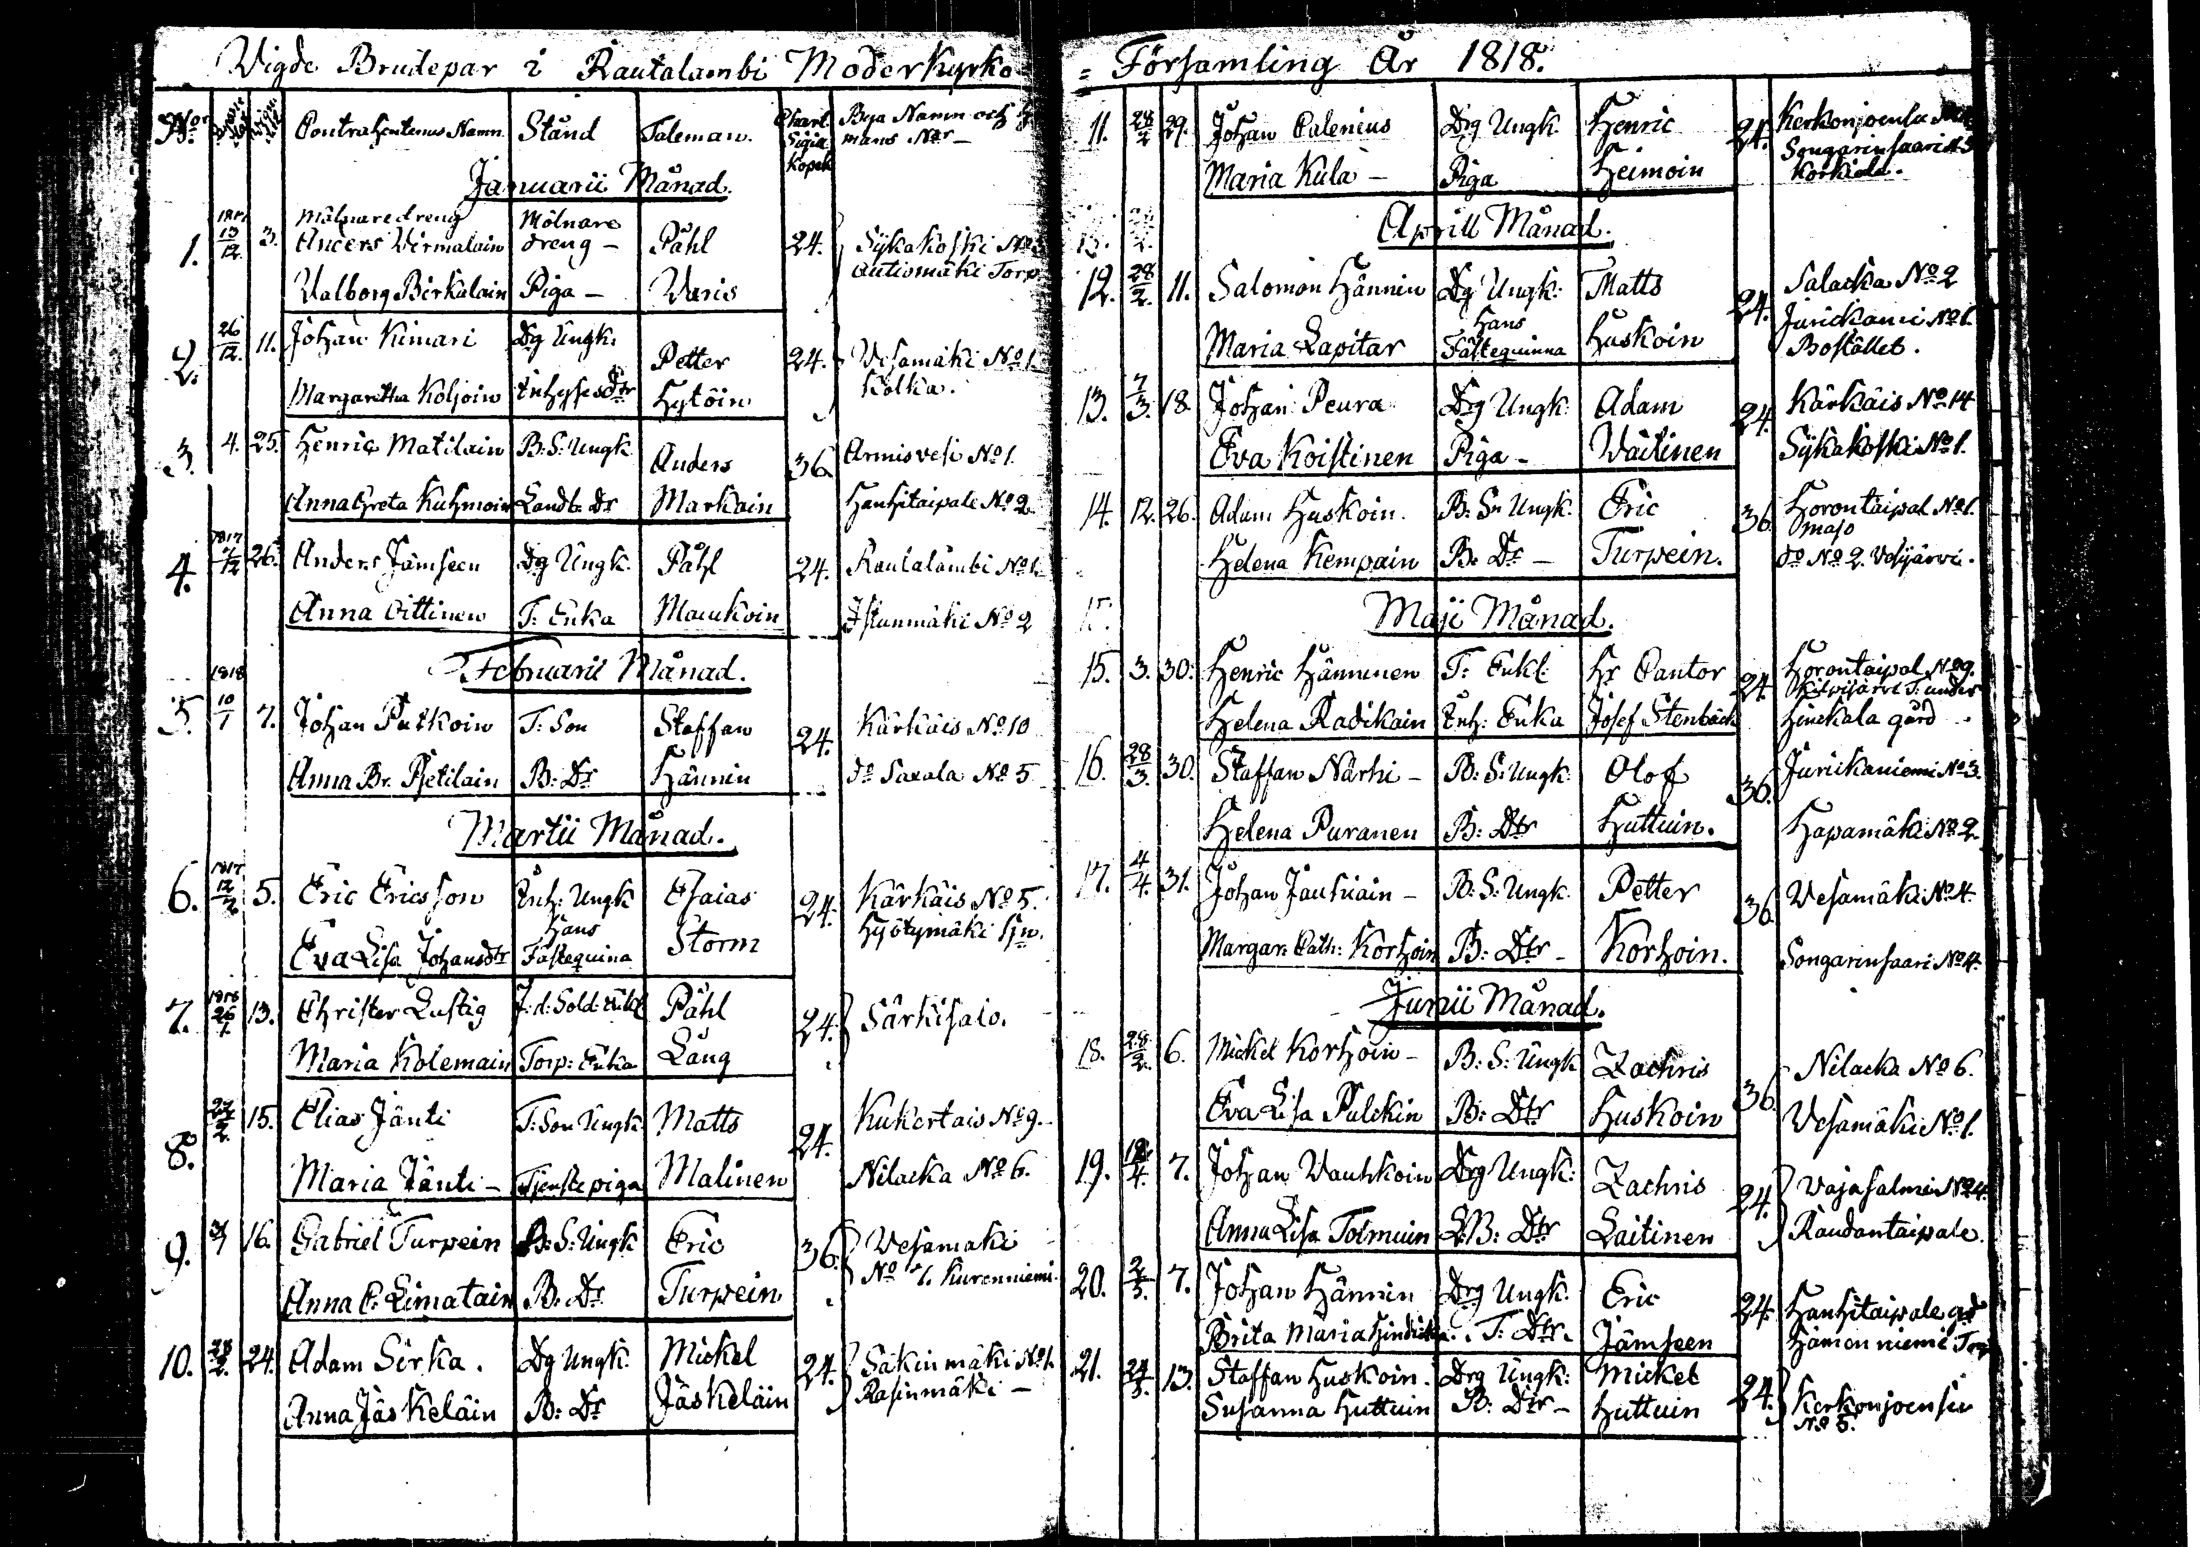 Vigde Brudepar i Rautalambi Moderkyrko
No. Contrahenternes Namn. Stånd Taleman. Chart. Sigill. Kopek Bya Namn och mans Nor –
Januarii Månad.
1. 1817 13/12 3. Mölnaredreng Anders Wirmalain Mölnare dreng – Påhl 24. Sÿkakoski No 3
Autiomäki Torp
Walborg Birkalain Piga – Waris
2. 26/12. 11. Johan Kimari Dg Ungk. Petter 24. Vesamäki No 1.
Margaretha Koljoin Enhyses Dtr Hytöin Kolka.
3. 4. 25. Henric Matilain B: S: Ungk. Anders 36 Armisvesi No 1.
Anna Greta Kuhmoin Landb. Dr Markain Hanhitaipale No 2.
4. 1817 7/12 26. Anders Jämseen Dg Ungk. Påhl 24. Rautalambi No 1.
Anna Oittinen T: Enka Maukoin Istunmäki No 2
Februarii Månad.
5. 1818 10/1 7. Johan Putkoin T: Son Staffan 24. Kärkäis No 10
Anna Br. Pietilain B: Dr Hännin do Saxala No 5
Martii Månad.
6. 1817 12/2 5. Eric Ericsson Enh: Ungk Esaias 24. Kärkäis No 5.
Eva Lisa Johansdtr Hans Fästequina Storm Hyötymäki
7. 1818 26/1 13. Christer Lustig Påhl 24. Särkisalo.
Maria Kolemain Torp: Enka Lång
8. 22/2. 15. Elias Jänti T: Son Ungk Matts 24. Kukertais No 9.
Maria Jänti – Tjenste piga Malinen Nilacka No 6.
9. 16. Gabriel Turpein B: S: Ungk Eric 36. Vesamäki
Anna C. Limatain B: Dr Turpein No 1. Kurenniemi.
10. 28/2. 24. Adam Sirka. Dg Ungk. Mickel 24. Säkinmäki No 1.
Anna Jäskeläin B: Dr Jäskeläin Rasinmäki –
= Församling År 1818.
11. 28/2 29. Johan Calenius Drg Ungk. Henric 24. Kerkonjoensu
Songarinsaari
Maria Kula – Piga Heimoin Korkiala.
Aprill Månad.
12. 28/2. 11. Salomon Hännin Dg Ungk: Matts 24. Salacka No 2
Maria Lapitar Hans Fästequinna Huskoin Jurickaniemi No 1.
Bostället.
13. 7/3. 18. Johan Peura Drg Ungk. Adam 24. Kärkäis No 14
Eva Koistinen Piga – Väitinen Sÿkäkoski No 1.
14. 12. 26. Adam Huskoin. B: Sn Ungk. Eric 36. Horontaipal No 1.
majo
Helena Kempain B: Dr – Turpein. do No 2. Vesijärvi.
Maji Månad.
15. 3. 30. Henric Hänninen T: Enkl: Hr Cantor 24 Horontaipal No 9.
T: under
Helena Radikain Enh: Enka Josef Stenbäck Hinckala gård
16. 28/3. 30. Staffan Närhi – B: S: Ungk. Olof 36. Jurickaniemi No 3.
Helena Puranen B: Dtr Huttuin. Hapamäki No 2.
17. 4/4. 31. Johan Jauhiain – B: S: Ungk. Petter 36 Vesamäki No 4.
Margar: Cath: Korhoin B: Dtr – Korhoin. Songarinsaari No 4.
Junii Månad.
18. 28/2. 6. Mickel Korhoin – B: S: Ungk Zachris 36. Nilacka No 6.
Eva Lisa Pulckin B: Dtr Huskoin Vesamäki No 1.
19. 12/4. 7. Johan Vauhkoin Drg Ungk: Zachris 24. Vajasalmi No 24.
Anna Lisa Tolmuin L:B: Dtr Laitinen Raudantaipale.
20. 2/5. 7. Johan Hännin Drg Ungk. Eric 24. Hanhitaipale gd
Brita Maria T: Dtr. Jämseen Hämonniemi Torp
21. 24/5. 13. Staffan Huskoin. Drg Ungk: Mickel 24. Kerkonjoensu
Susanna Huttuin B: Dtr – Huttuin No 5.